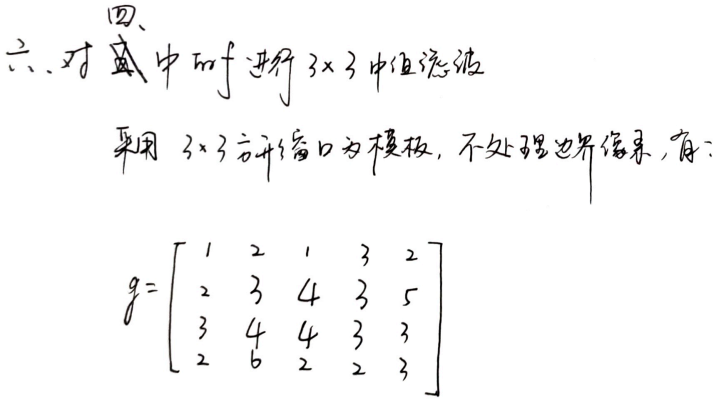 四、
六、对 中的f进行3×3中值滤波
采用 3×3方形窗口为模板,不处理边界像素,有:
g= [ 1 2 1 3 2
2 3 4 3 5
3 4 4 3 3
2 6 2 2 3 ]